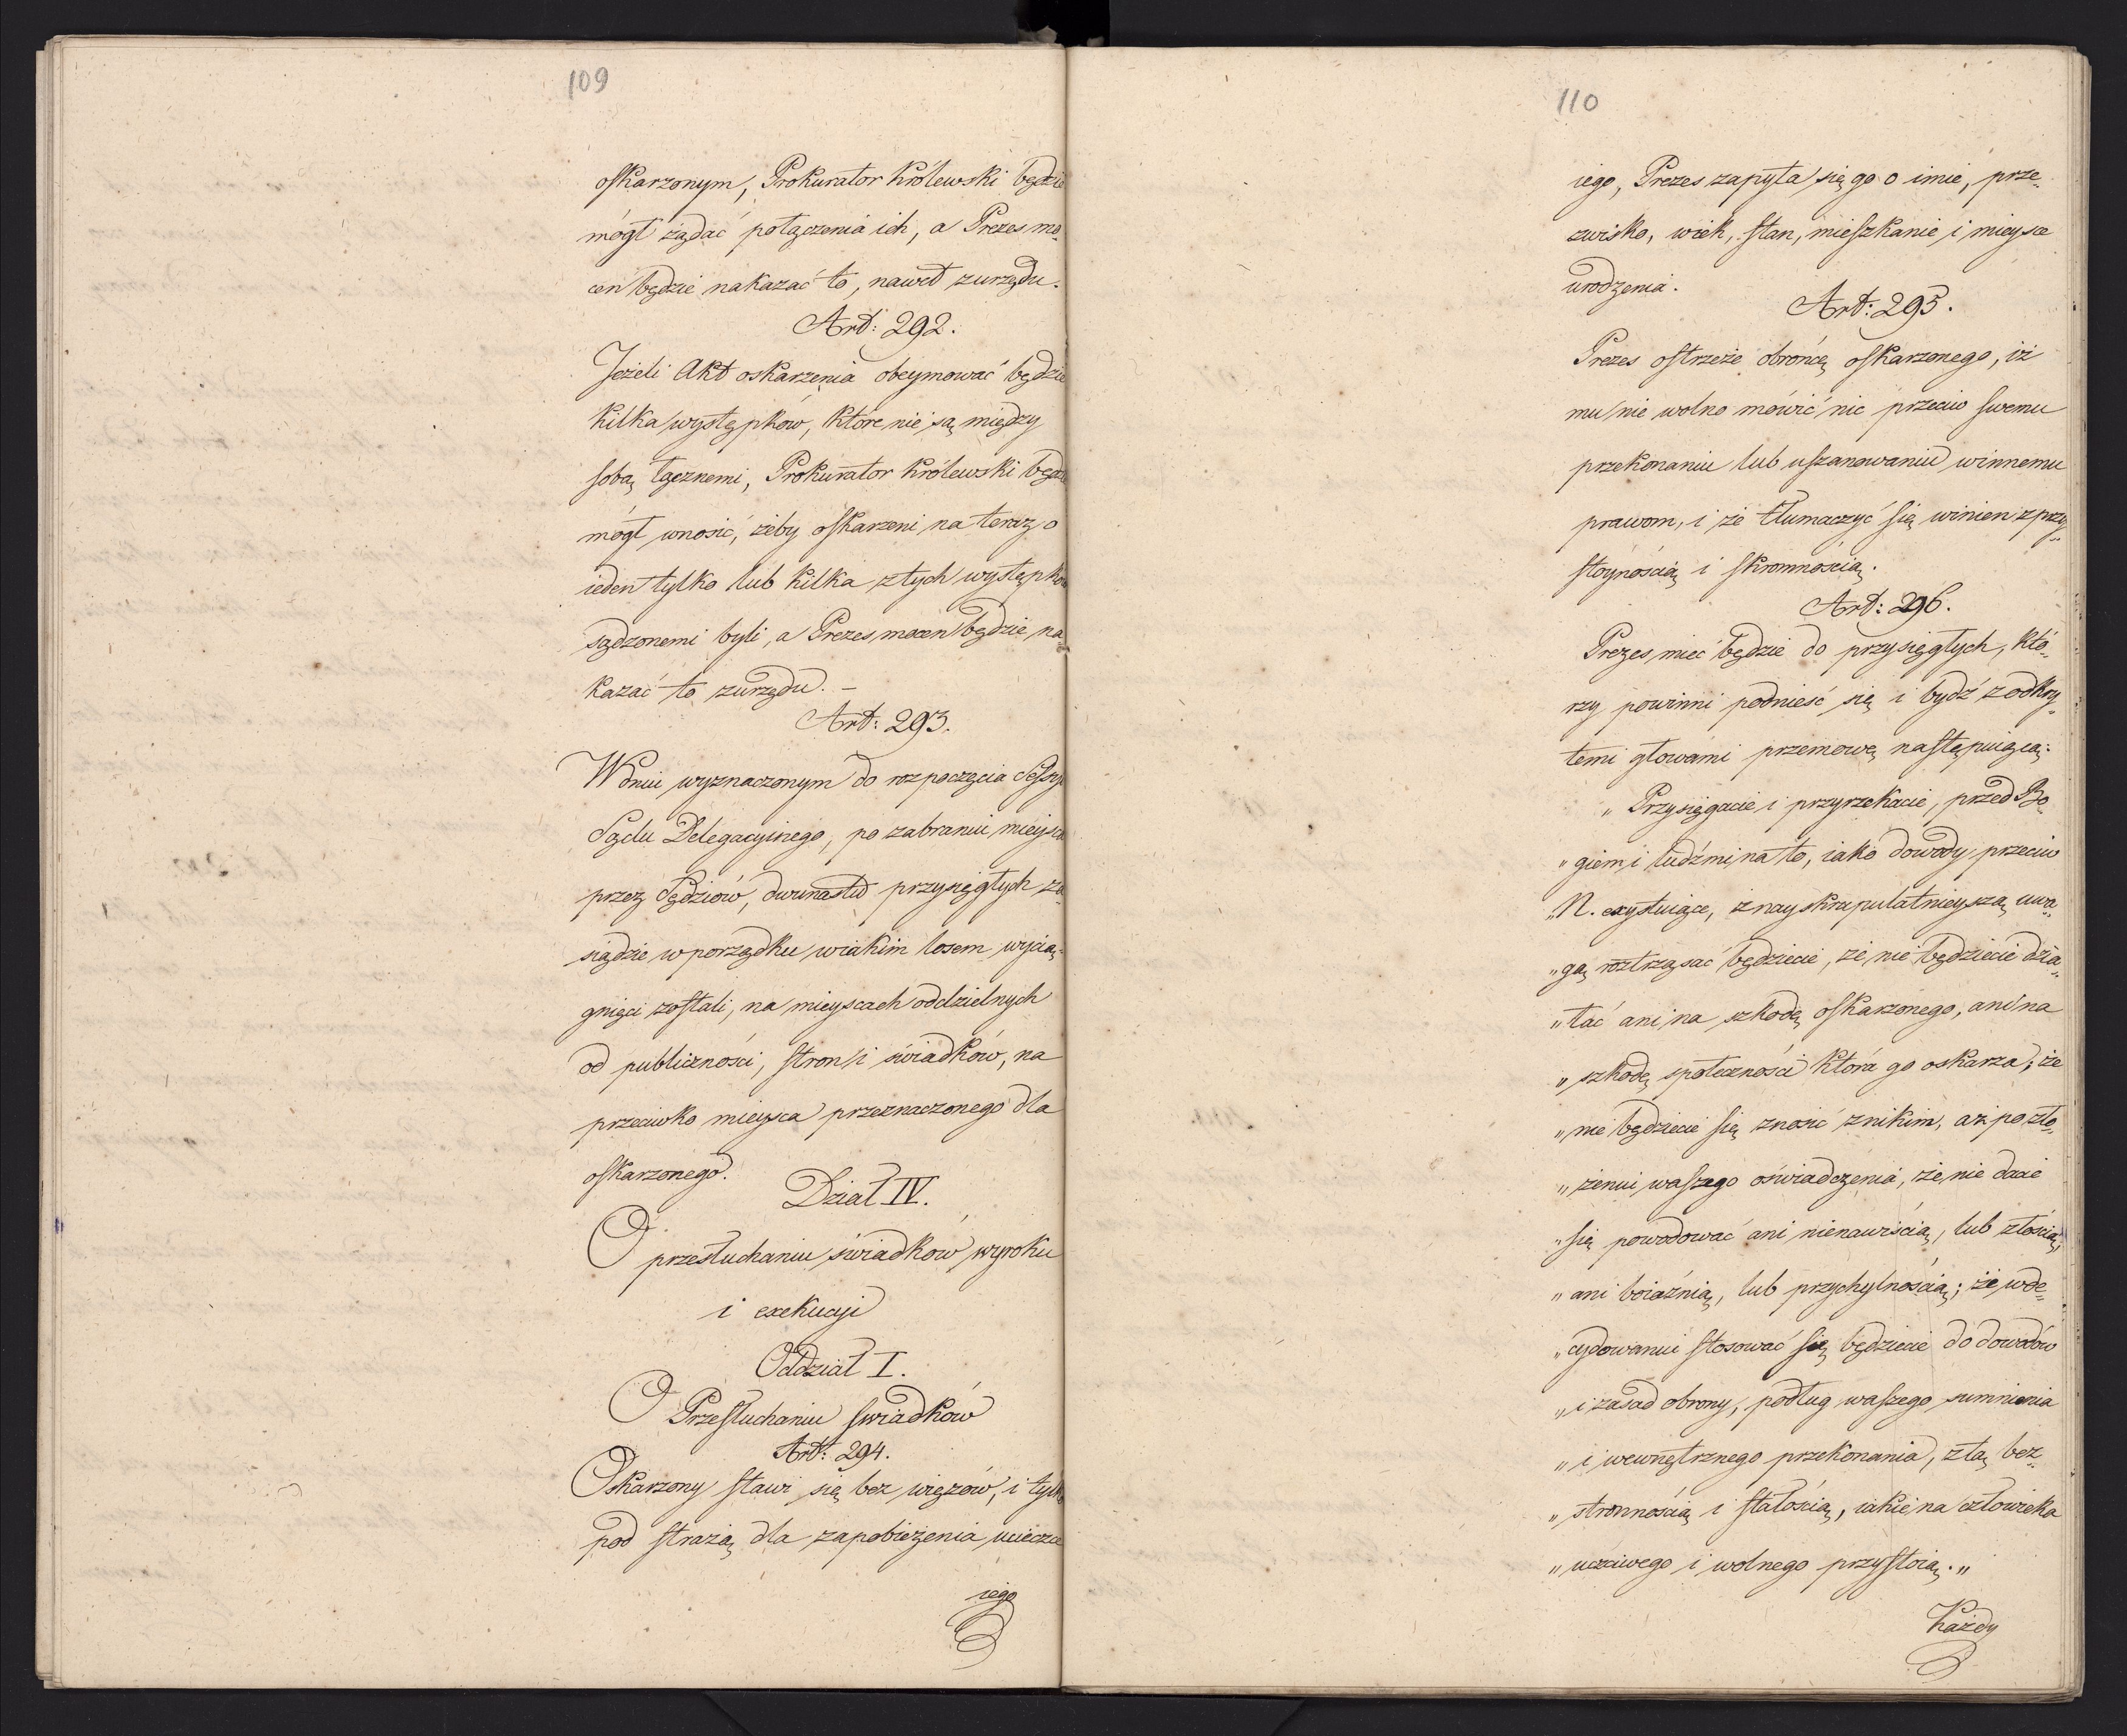 109
oskarzonym, Prokurator Królewski będzie
mógł żądać połączenia ich, a Prezes mo„
cen będzie nakazać to, nawet z urzędu.
Art: 292.
Jeżeli Akt oskarzenia obeymować będzie
kilka występków, które nie są między
sobą łącznemi, Prokurator Królewski będzie
mógł wnosić, żeby oskarzeni na teraz o
ieden tylko lub kilka z tych występków
sądzonemi byli, a Prezes mocen będzie na„
kazać to z urzędu. –
Art: 293.
W dniu wyznaczonym do rozpoczęcia Sessyi
Sądu Delegacyinego, po zabraniu mieysca
przez Sędziów, dwunastu przysięgłych za„
siądzie w porządku w iakim losem wycią„
gnięci zostali, na mieyscach oddzielnych
od publiczności, stron i świadków, na
przeciwko mieysca przeznaczonego dla
oskarzonego.
Dział IV.
O przesłuchaniu świadków wyroku
i exekucyi
Oddział I.
O Przesłuchaniu świadków
Art: 294.
Oskarzony stawi się bez więzów, i tylko
pod strażą dla zapobieżenia ucieczce
iego
110
iego, Prezes zapyta się go o imie, prze„
zwisko, wiek, stan, mieszkanie i mieysce
urodzenia.
Art: 295.
Prezes ostrzeże obrońcę oskarzonego, iż
mu nie wolno mówić nic przeciw swemu
przekonaniu lub uszanowaniu winnemu
prawom, i że tłumaczyć się winien z przy„
stoynością i skromnością.
Art: 296.
Prezes mieć będzie do przysięgłych, któ„
rzy powinni podnieść się i bydź z odkry„
temi głowami przemowę następuiącą:
„ Przysięgacie i przyrzekacie, przed Bo„
„giem i ludźmi na to, iako dowody przeciw
„N. exystuiące, z nayskrupulatnieyszą uwa„
„gą roztrząsać będziecie, że nie będziecie dzia„
„łać ani na szkodę oskarzonego, ani na
„szkodę społeczności która go oskarza; że
„nie będziecie się znosić z nikim, aż po zło„
„żeniu waszego oświadczenia, że nie dacie
„się powodować ani nienawiścią, lub złością,
„ani boiaźnią, lub przychylnością; że w de„
„cydowaniu stosować się będziecie do dowodów
„i zasad obrony, podług waszego sumnienia
„i wewnętrznego przekonania, z tą bez„
„stronnością i stałością, iakie na człowieka
„uczciwego i wolnego przystoią.„
Każdy